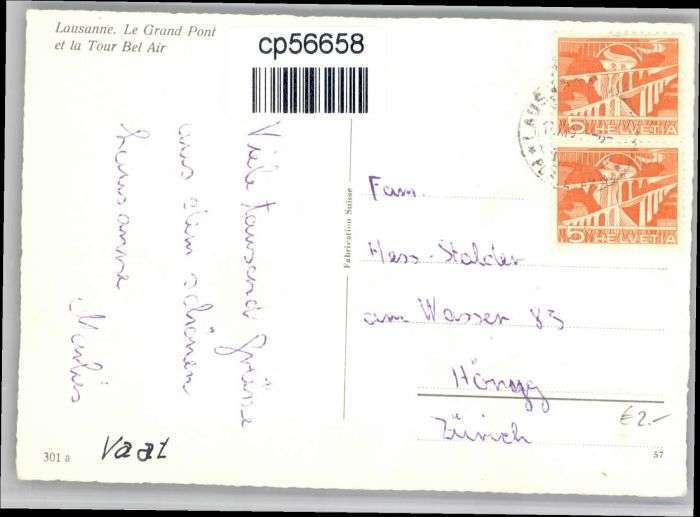 Lausanne. Le Grand Pont
et la Tour Bel Air
cp56658
Viele tausend Grüsse
aus dem schönen
Lausanne
Marlies
Fabrication Suisse
5 HELVETIA
5 HELVETIA
Fam.
Hess-Stalder
am Wasser 83
Höngg
Zürich
€2.-
301 a
Vaat
57